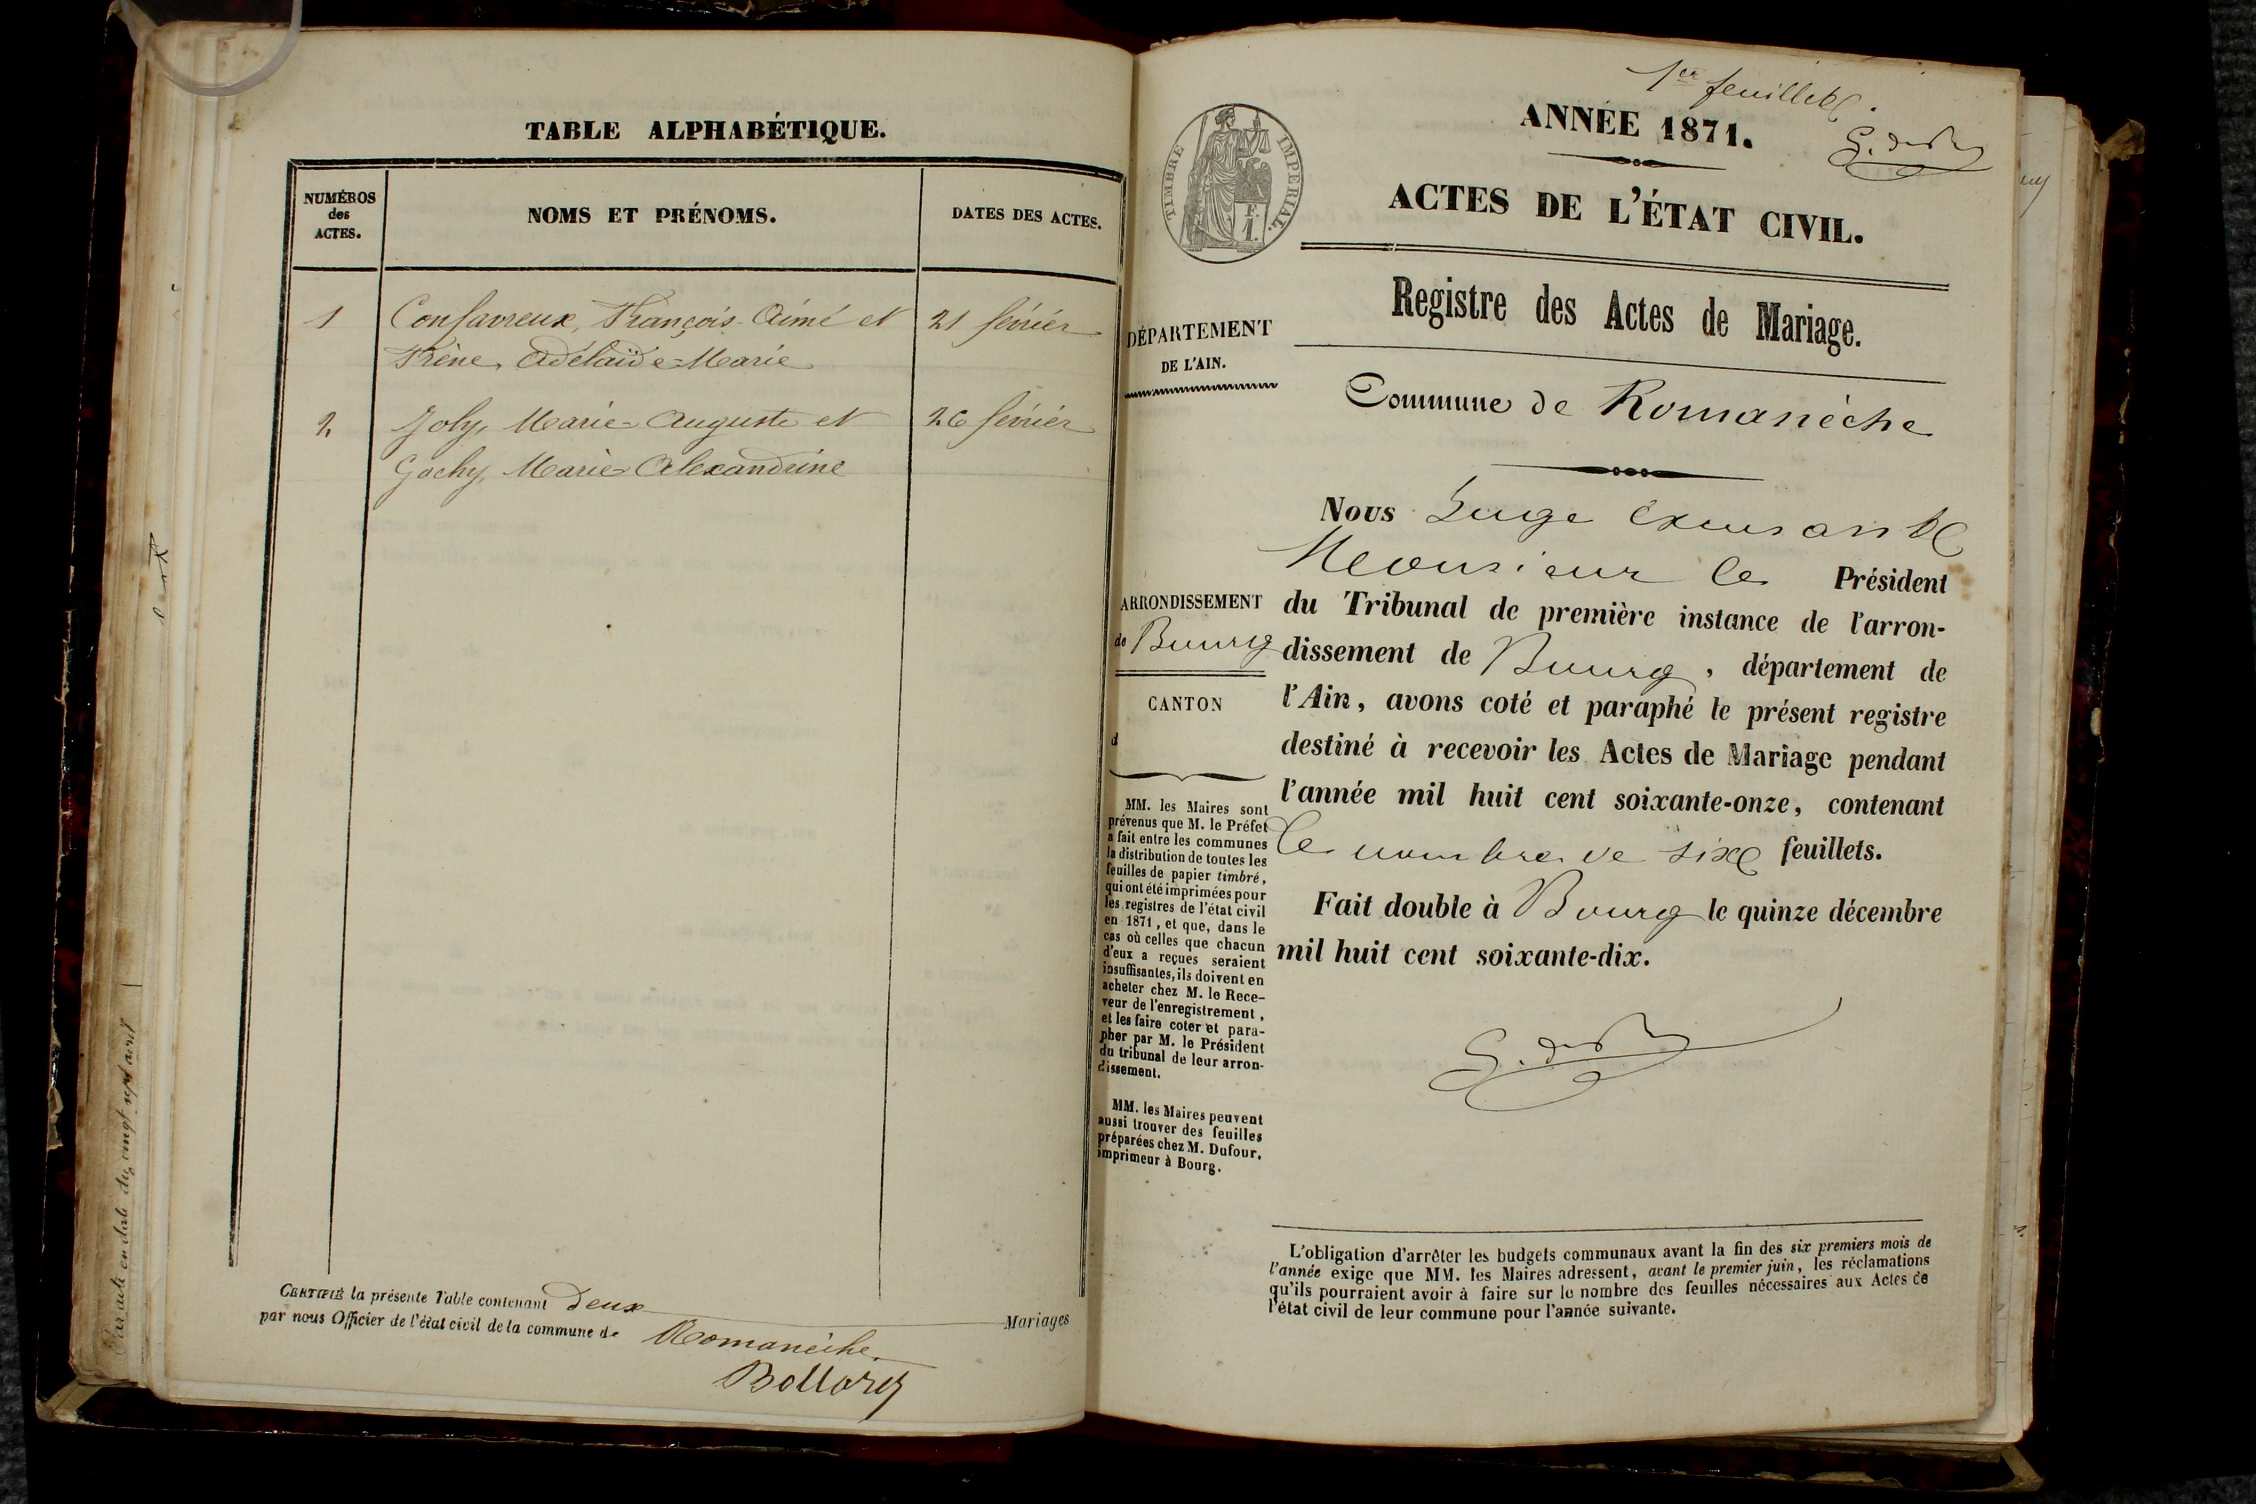 TABLE ALPHABÉTIQUE.
NUMÉROS
des
ACTES.
NOMS ET PRÉNOMS.
DATES DES ACTES.
1 Confavreux, François-Aimé et 21 février
Frène, Adélaïde-Marie
2 Joly, Marie-Auguste et 26 février
Gochy, Marie-Alexandrine
CERTIFIÉ la présente Table contenant deux Mariages
par nous Officier de l'état civil de la commune de Romanèche.
Bollorey
1er feuillet.
TIMBRE IMPÉRIAL.
F.
1.
ANNÉE 1871.
ACTES DE L'ÉTAT CIVIL.
Registre des Actes de Mariage.
DÉPARTEMENT
DE L'AIN.
Commune de Romanèche
ARRONDISSEMENT
de Bourg
CANTON
d
MM. les Maires sont
prévenus que M. le Préfet
a fait entre les communes
la distribution de toutes les
feuilles de papier timbré,
qui ont été imprimées pour
les registres de l'état civil
en 1871, et que, dans le
cas où celles que chacun
d'eux a reçues seraient
insuffisantes, ils doivent en
acheter chez M. le Rece-
veur de l'enregistrement,
et les faire coter et para-
pher par M. le Président
du tribunal de leur arron-
dissement.
MM. les Maires peuvent
aussi trouver des feuilles
préparées chez M. Dufour,
imprimeur à Bourg.
Nous Juge
Monsieur le Président
du Tribunal de première instance de l'arron-
dissement de Bourg, département de
l'Ain, avons coté et paraphé le présent registre
destiné à recevoir les Actes de Mariage pendant
l'année mil huit cent soixante-onze, contenant
le nombre de six feuillets.
Fait double à Bourg le quinze décembre
mil huit cent soixante-dix.
L'obligation d'arrêter les budgets communaux avant la fin des six premiers mois de
l'année exige que MM. les Maires adressent, avant le premier juin, les réclamations
qu'ils pourraient avoir à faire sur le nombre des feuilles nécessaires aux Actes de
l'état civil de leur commune pour l'année suivante.